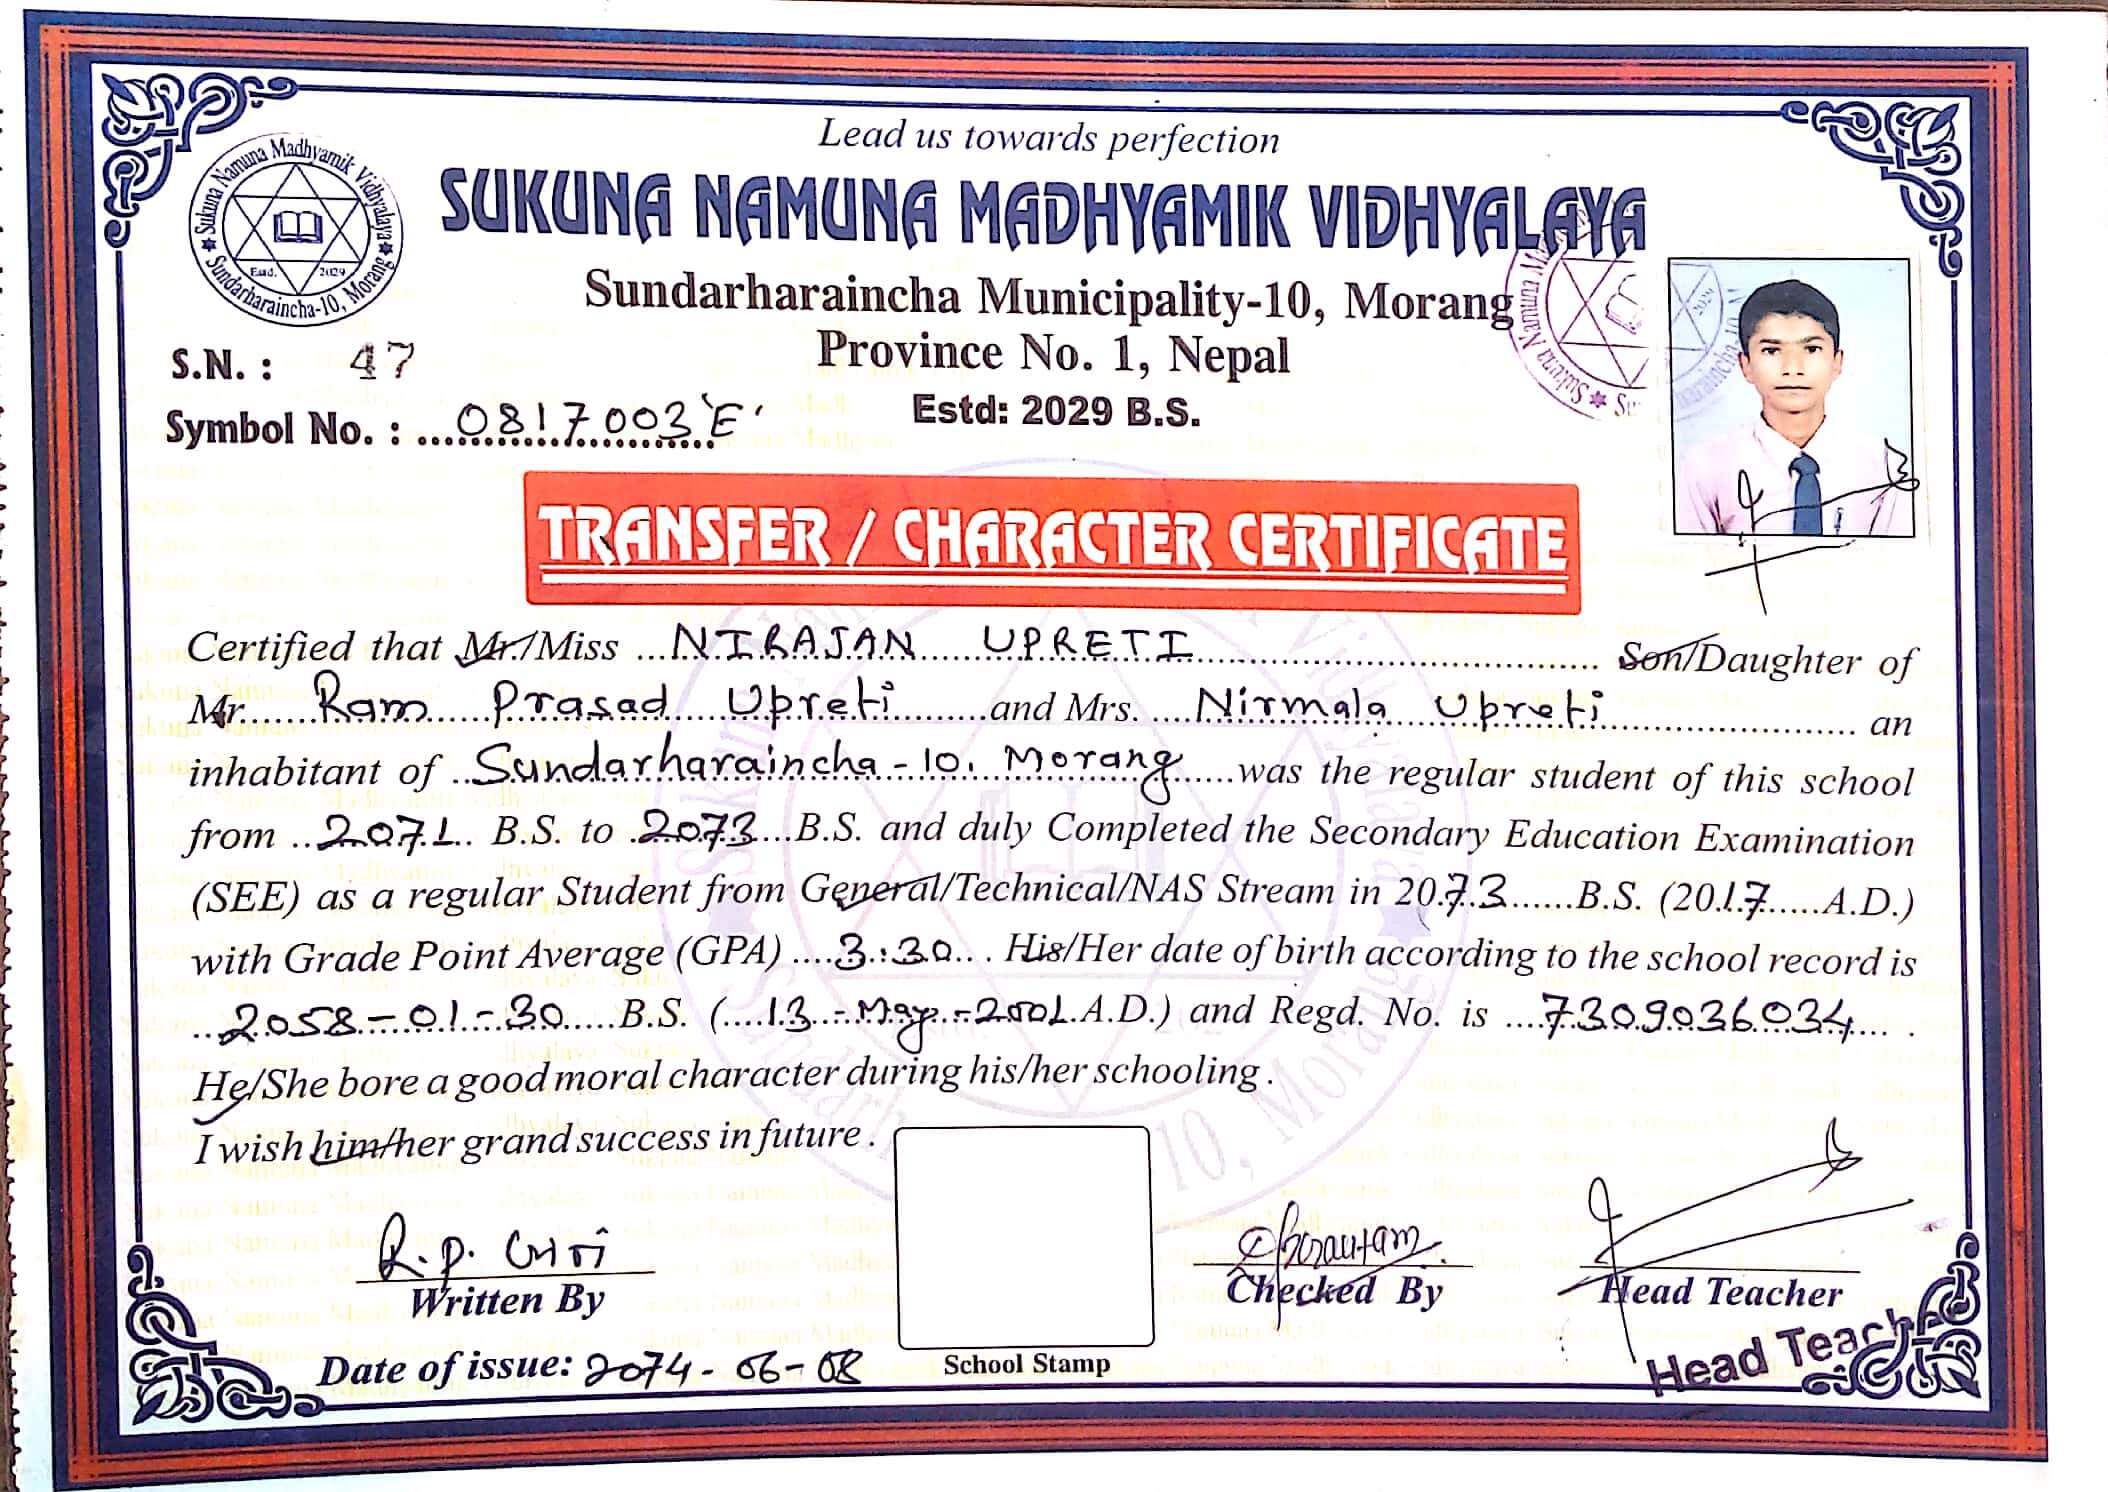 Lead us towards perfection
SUKUNA NAMUNA MADHYAMIK VIDHYALAYA
Sukuna Namuna Madhyamik Vidhyalaya
Estd. 2029
Sundarharaincha-10, Morang
Sundarharaincha Municipality-10, Morang
Province No. 1, Nepal
Estd: 2029 B.S.
S.N. : 47
Symbol No. : 0817003 'E'
TRANSFER / CHARACTER CERTIFICATE
Certified that Mr./Miss NIRAJAN UPRETI Son/Daughter of
Mr. Ram Prasad Upreti and Mrs. Nirmala Upreti an
inhabitant of Sundarharaincha - 10, Morang was the regular student of this school
from 2071 B.S. to 2073 B.S. and duly Completed the Secondary Education Examination
(SEE) as a regular Student from General/Technical/NAS Stream in 2073 B.S. (2017 A.D.)
with Grade Point Average (GPA) 3.30. His/Her date of birth according to the school record is
2058-01-30 B.S. (13-May-2001 A.D.) and Regd. No. is 7309036034.
He/She bore a good moral character during his/her schooling.
I wish him/her grand success in future.
R.P.
Written By
Checked By
Head Teacher
Head Teache
Date of issue: 2074-06-08
School Stamp